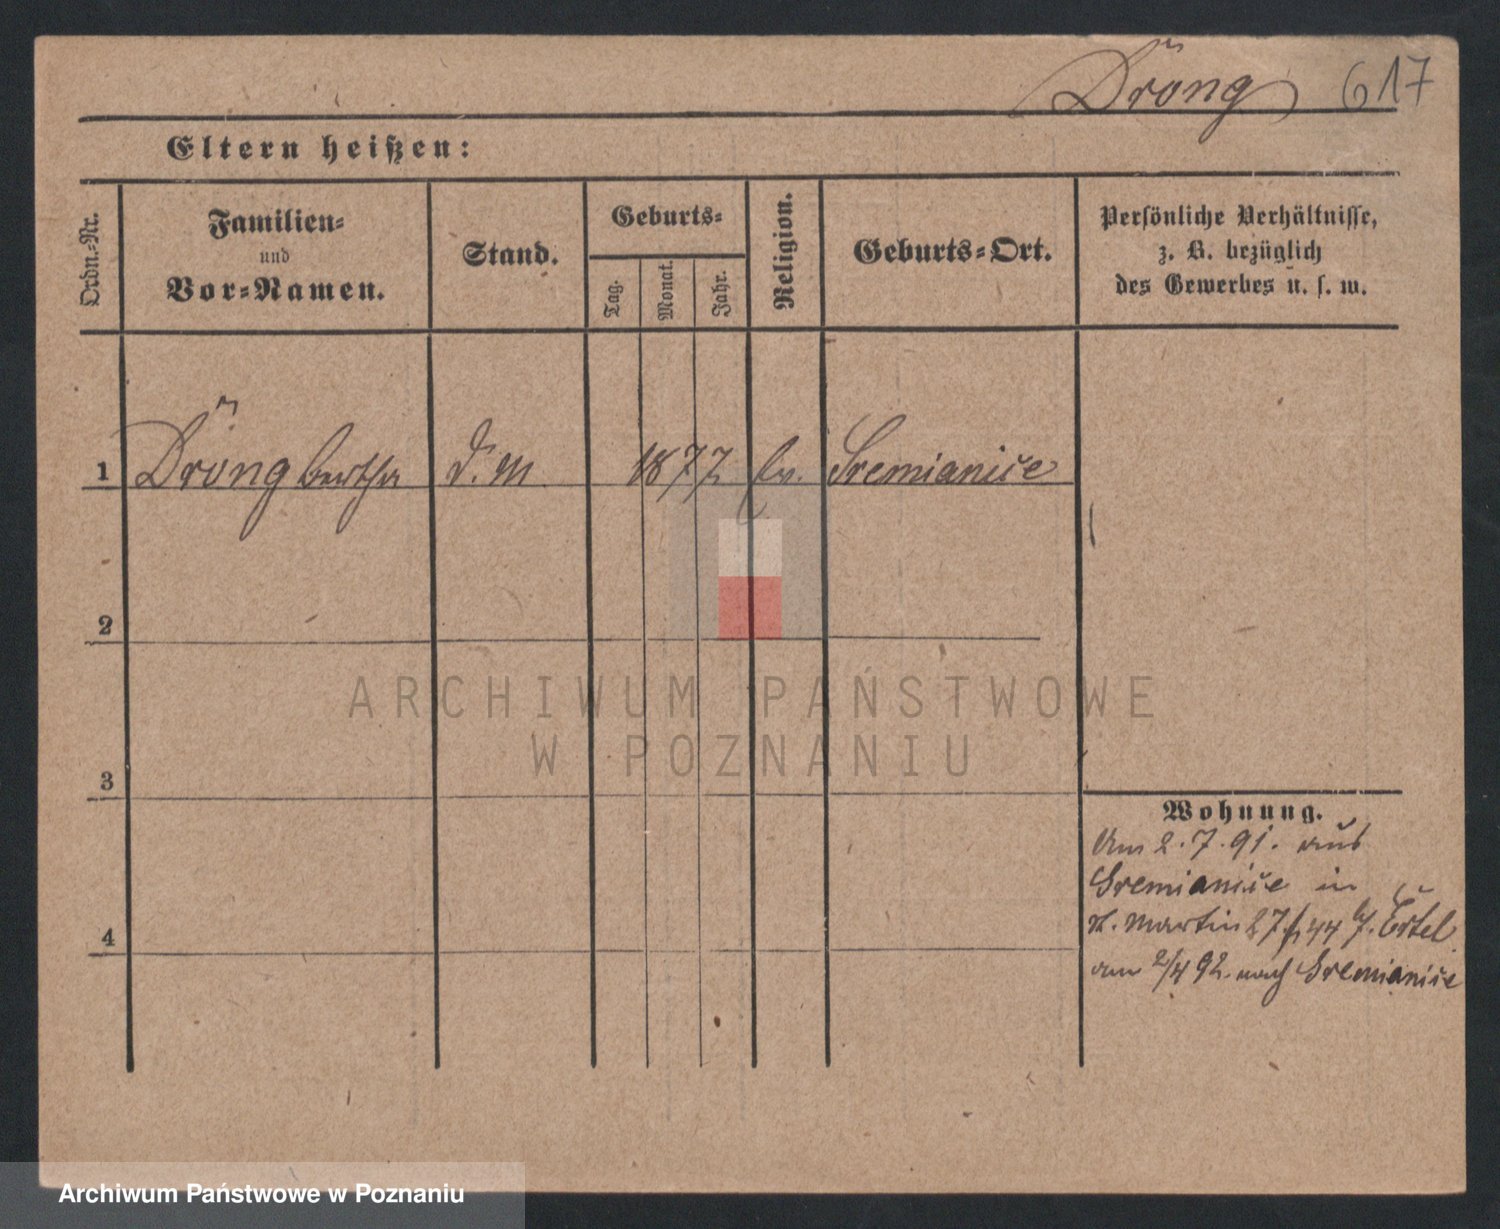 Dröng 617
Eltern heißen:
Ordn.-Nr.
Familien-
und
Vor-Namen.
Stand.
Geburts-
Tag.
Monat.
Jahr.
Religion.
Geburts-Ort.
Persönliche Verhältnisse,
z. B. bezüglich
des Gewerbes u. s. w.
1 Dröng bertha d. M. 1877 Sremianice
2
3
4
Wohnung.
Am 2.7.91. aus
Sremianice in
St. Martin 27 44 b/. Ertel
am 2/4 92. nach Sremianice
ARCHIWUM PAŃSTWOWE
W POZNANIU
Archiwum Państwowe w Poznaniu